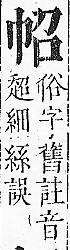 俗字舊註音
超細絲誤